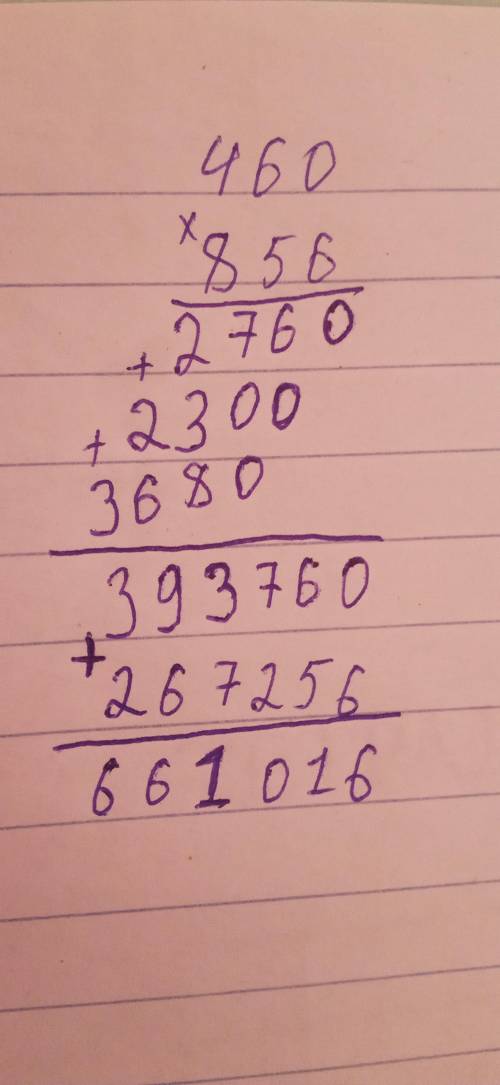 460
x
856
2760
+
2300
+
3680
393760
+
267256
661016